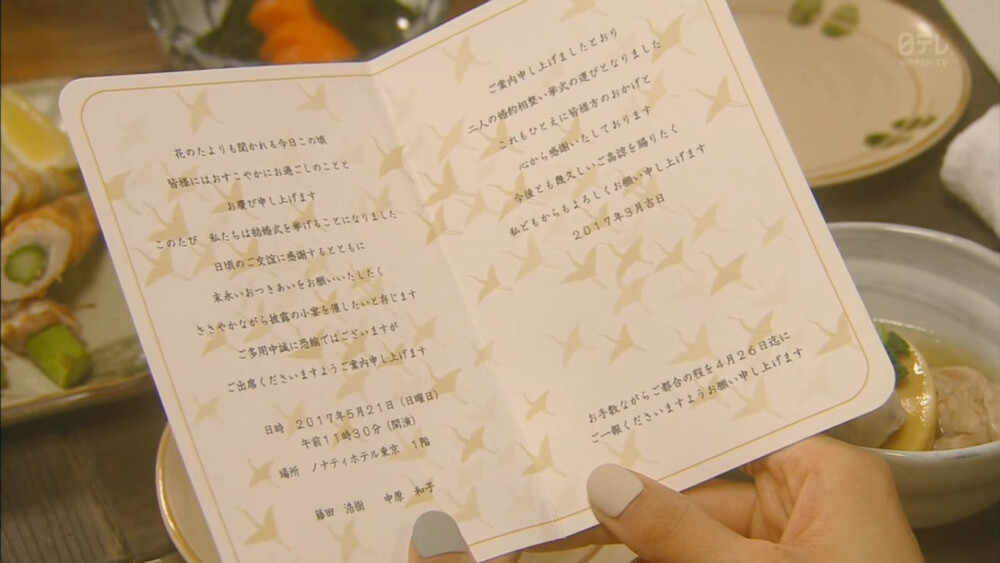 花のたよりも聞かれる今日この頃
皆様にはおすこやかにお過ごしのことと
お慶び申し上げます
このたび 私たちは結婚式を挙げることになりました
日頃のご交誼に感謝するとともに
末永いおつきあいをお願いいたしたく
ささやかながら披露の小宴を催したいと存じます
ご多用中誠に恐縮ではございますが
ご出席くださいますようご案内申し上げます
日時 2017年5月21日(日曜日)
午前11時30分(開演)
場所 ノナティホテル東京 1階
藤田 浩樹 中原 和子
ご案内申し上げましたとおり
二人の婚約相整い挙式の運びとなりました
これもひとえに皆様方のおかげと
心から感謝いたしております
今後とも幾久しいご高誼を賜りたく
私どもからもよろしくお願い申し上げます
2017年3月吉日
お手数ながらご都合の程を4月26日迄に
ご一報くださいますようお願い申し上げます
日テレ
NIPPON TV